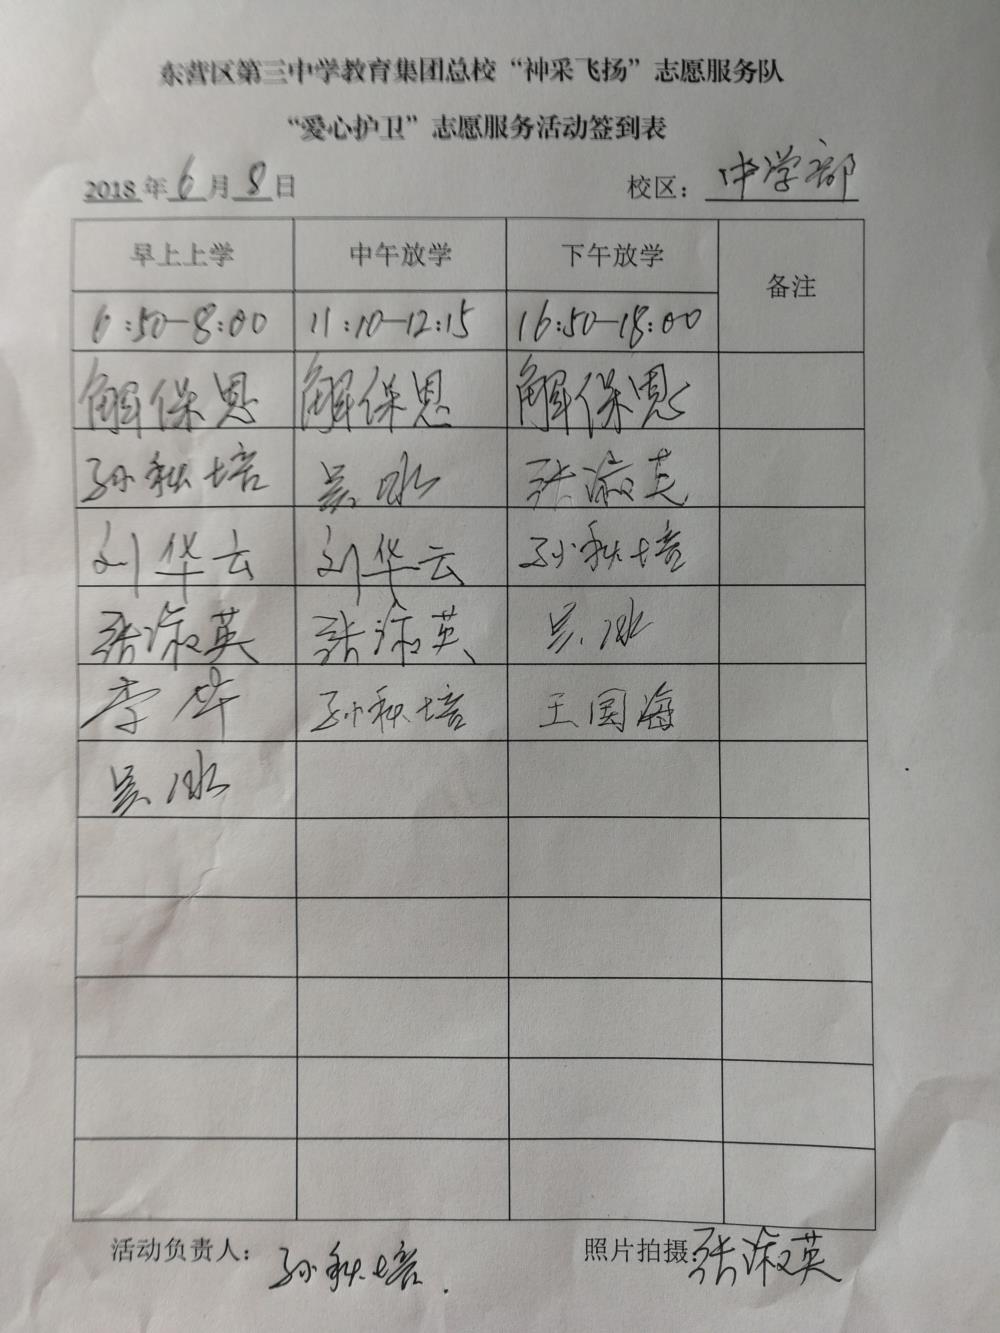 东营区第三中学教育集团总校“神采飞扬”志愿服务队
“爱心护卫”志愿服务活动签到表
2018年6月8日 校区：中学部
早上上学 中午放学 下午放学 备注
6:50-8:00 11:10-12:15 16:50-18:00
解保恩 解保恩 解保恩
孙秋培 吴冰 张淑英
刘华云 刘华云 孙秋培
张淑英 张淑英 吴冰
李 孙秋培 王国海
吴冰
活动负责人：孙秋培. 照片拍摄：张淑英